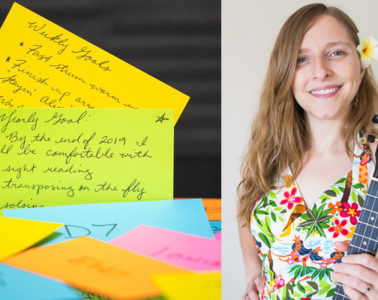 Weekly Goals
* Fast strum warm u
* Finish up arr
Stayin' Aliv
Yearly Goal:
By the end of 2019 I
ll be comfortable with
sight reading
transposing on the fly
soloing
D7